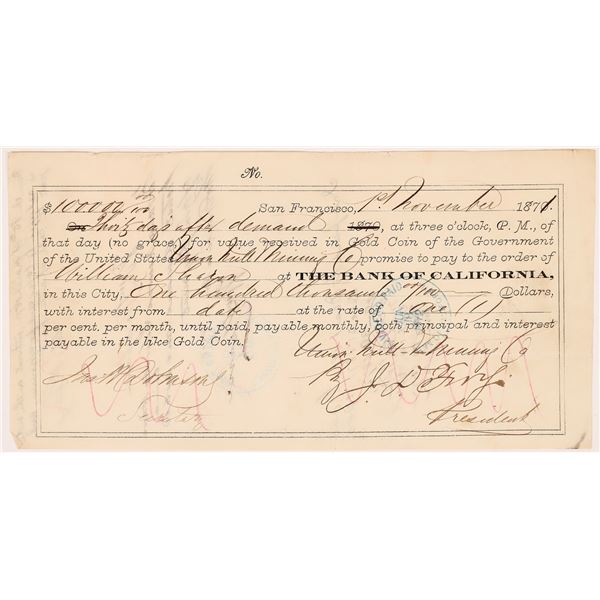 No.
$100.000 00/100 San Francisco, 1st November 1871.
On Thirty days after demand 1870, at three o'clock, P. M., of
that day (no grace,) for value received in Gold Coin of the Government
of the United States Union Mill & Mining Co promise to pay to the order of
William Sharon at THE BANK OF CALIFORNIA,
in this City, One hundred thousand 00/100 Dollars,
with interest from date at the rate of one (1)
per cent. per month, until paid, payable monthly, both principal and interest
payable in the like Gold Coin.
Union Mill & Mining Co
By J. D. Fry
President
Secretary